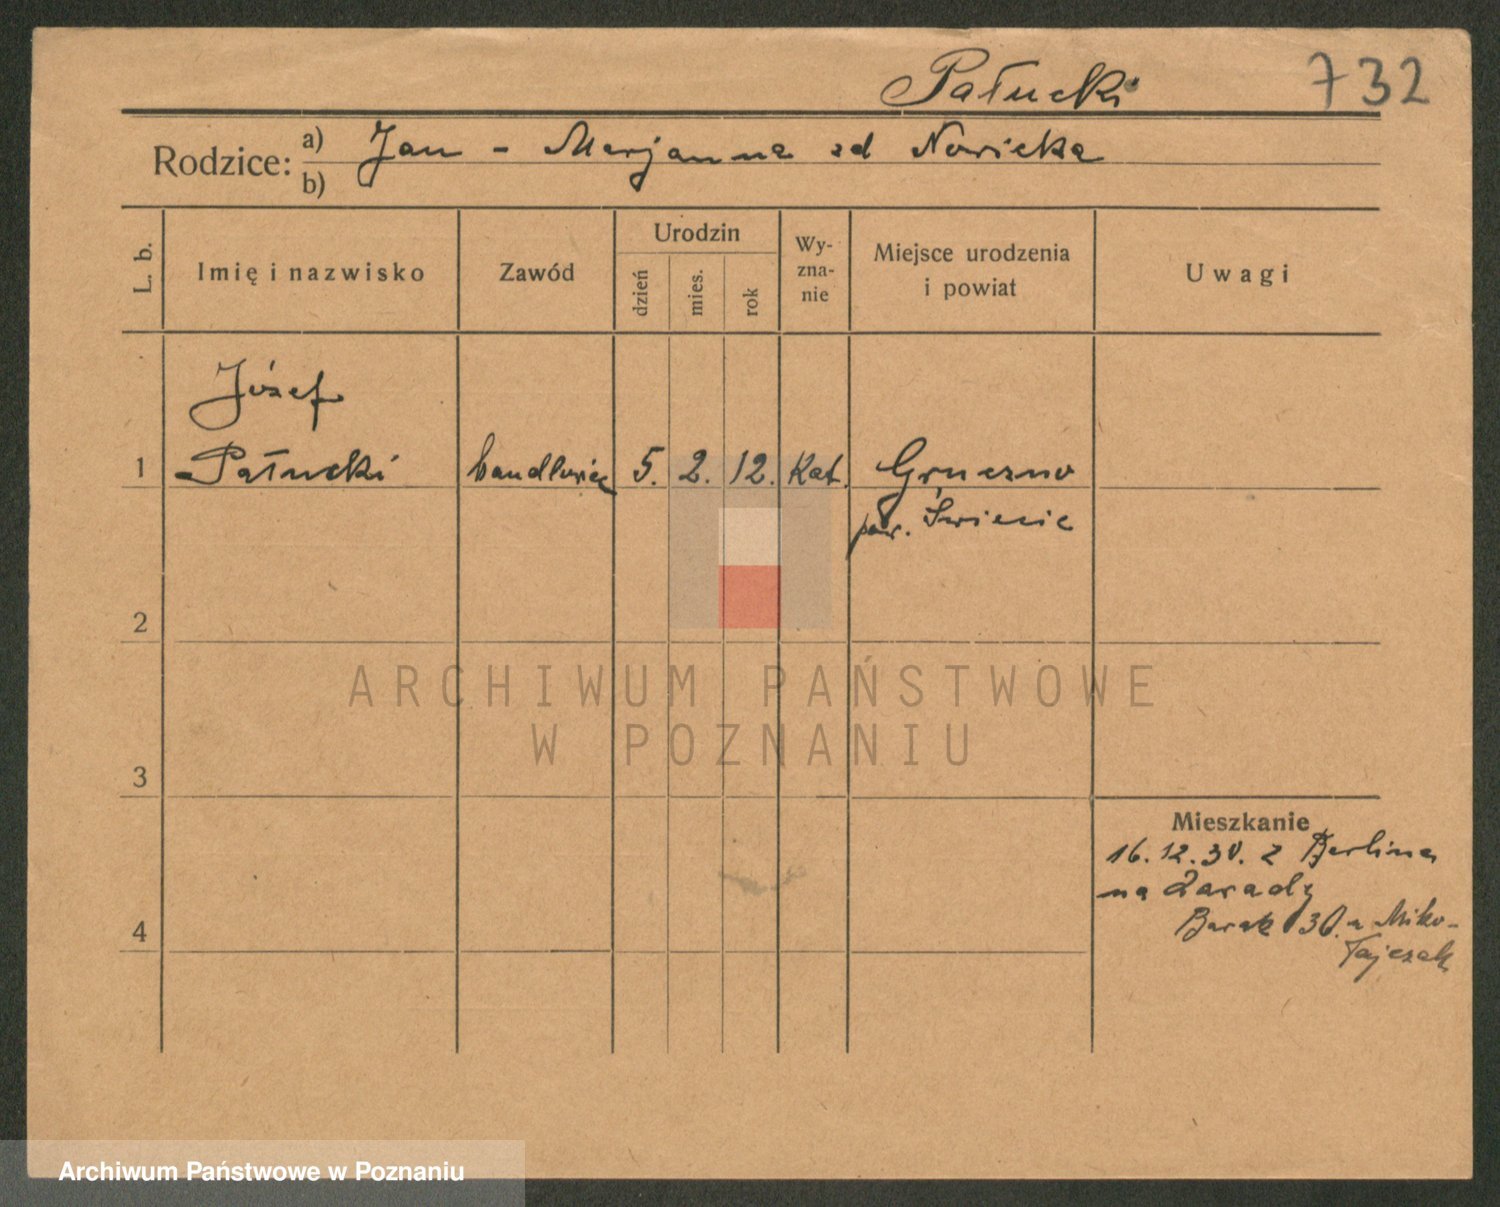 Pałucki 732
Rodzice: a) Jan - Marjanna zd Nowicka
b)
L. b. Imię i nazwisko Zawód Urodzin dzień mies. rok Wy-zna-nie Miejsce urodzenia i powiat Uwagi
Józef
1 Pałucki handlowiec 5. 2. 12. Kat. Gruczno
pow. Świecie
2
ARCHIWUM PAŃSTWOWE
W POZNANIU
3
Mieszkanie
16.12.30. z Berlina
na Zawady
4 Barak 30. a Miko-
łajczak
Archiwum Państwowe w Poznaniu